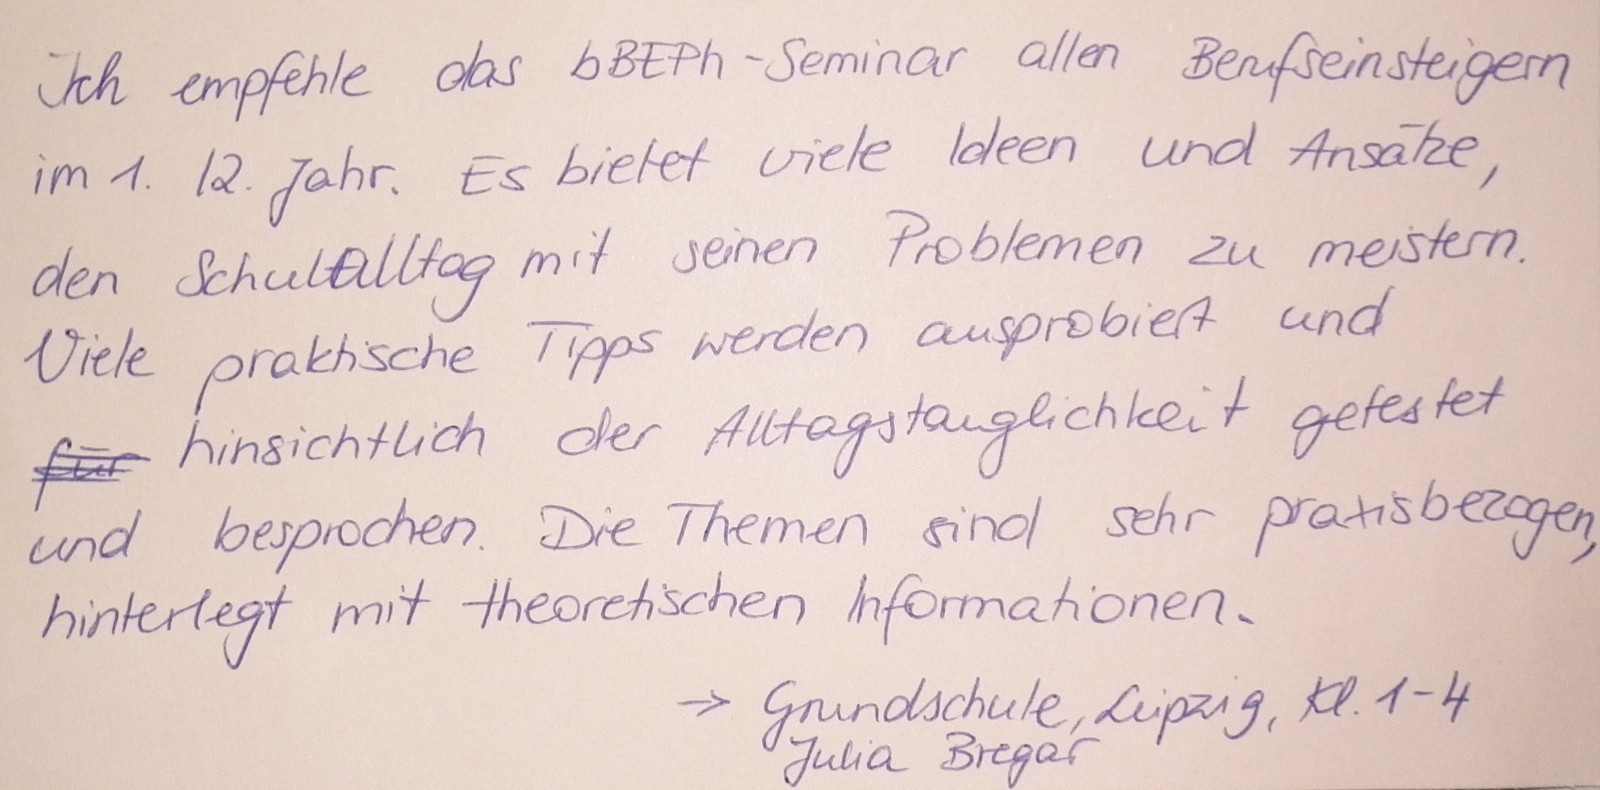 Ich empfehle das bBEPh-Seminar allen Berufseinsteigern
im 1. /2. Jahr. Es bietet viele Ideen und Ansätze,
den Schulalltag mit seinen Problemen zu meistern.
Viele praktische Tipps werden ausprobiert und
für hinsichtlich der Alltagstauglichkeit getestet
und besprochen. Die Themen sind sehr praxisbezogen,
hinterlegt mit theoretischen Informationen.
→ Grundschule, Leipzig, Kl. 1-4
Julia Bregar